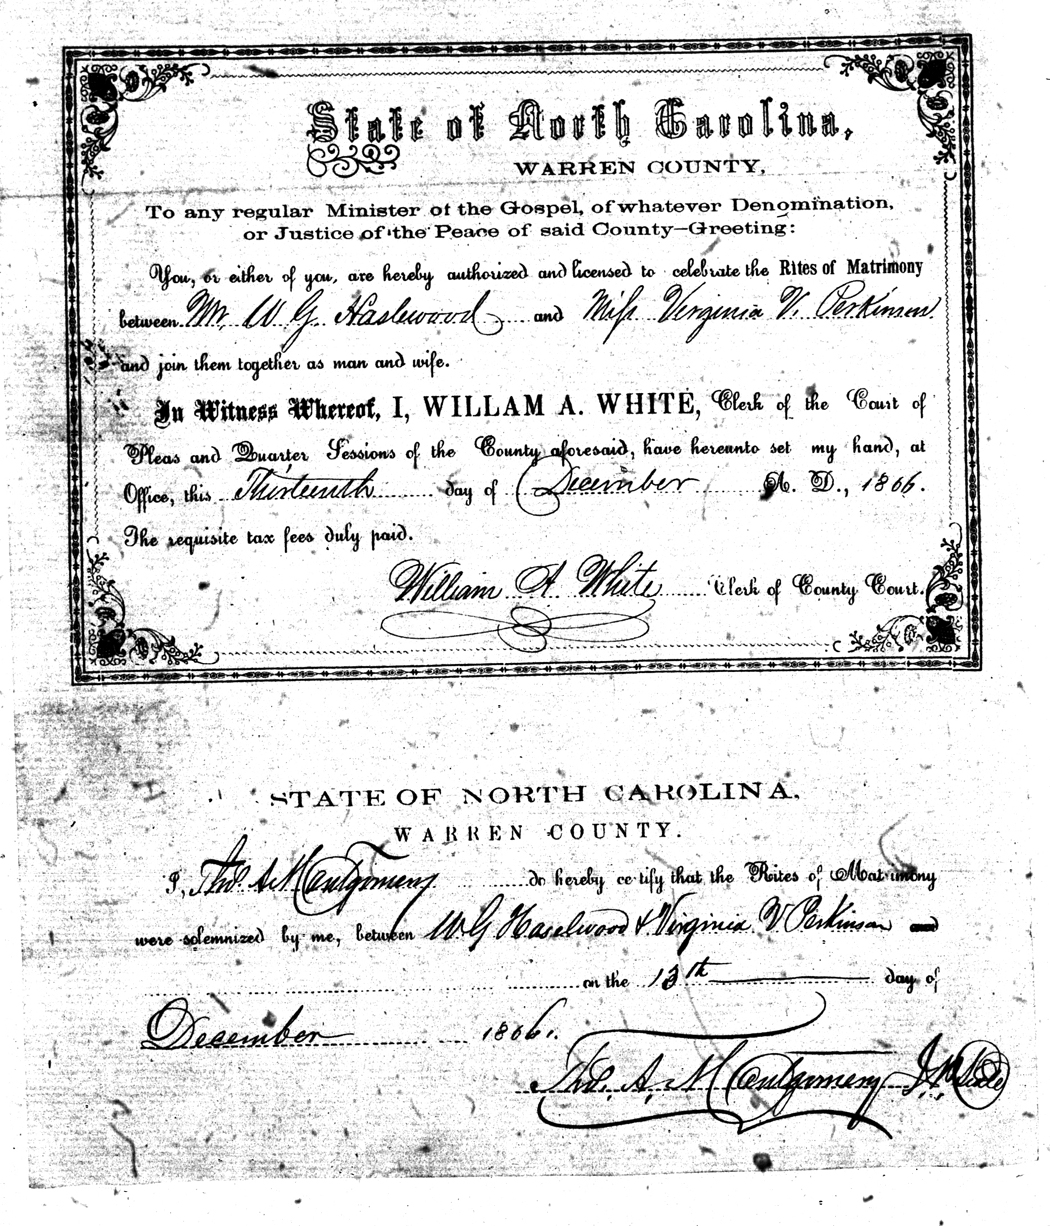 State of North Carolina,
WARREN COUNTY,
To any regular Minister of the Gospel, of whatever Denomination,
or Justice of the Peace of said County—Greeting:
You, or either of you, are hereby authorized and licensed to celebrate the Rites of Matrimony
between Mr. W G. Haslewood and Miss Virginia V. Perkinson
and join them together as man and wife.
In Witness Whereof, I, WILLAM A. WHITE, Clerk of the Court of
Pleas and Quarter Sessions of the County aforesaid, have hereunto set my hand, at
Office, this Thirteenth day of December A. D., 1866.
The requisite tax fees duly paid.
William A White Clerk of County Court.
STATE OF NORTH CAROLINA,
WARREN COUNTY.
I, Tho. A Montgomery do hereby certify that the Rites of Matrimony
were solemnized by me, between W. G Haselwood & Virginia V. Perkinson and
on the 13th day of
December 1866.
Tho. A. Montgomery